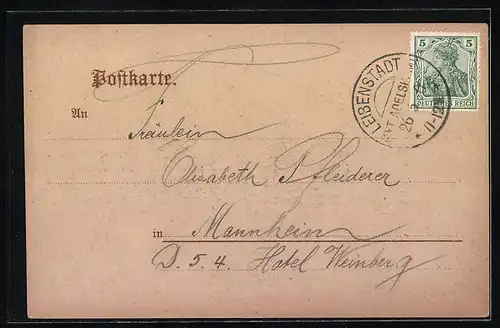 Postkarte.
An
Fräulein
Elisabeth Pfleiderer
in Mannheim
D. 5. 4. Hotel Weinberg
5 5
DEUTSCHES REICH
LEIBENSTADT
26
11-12